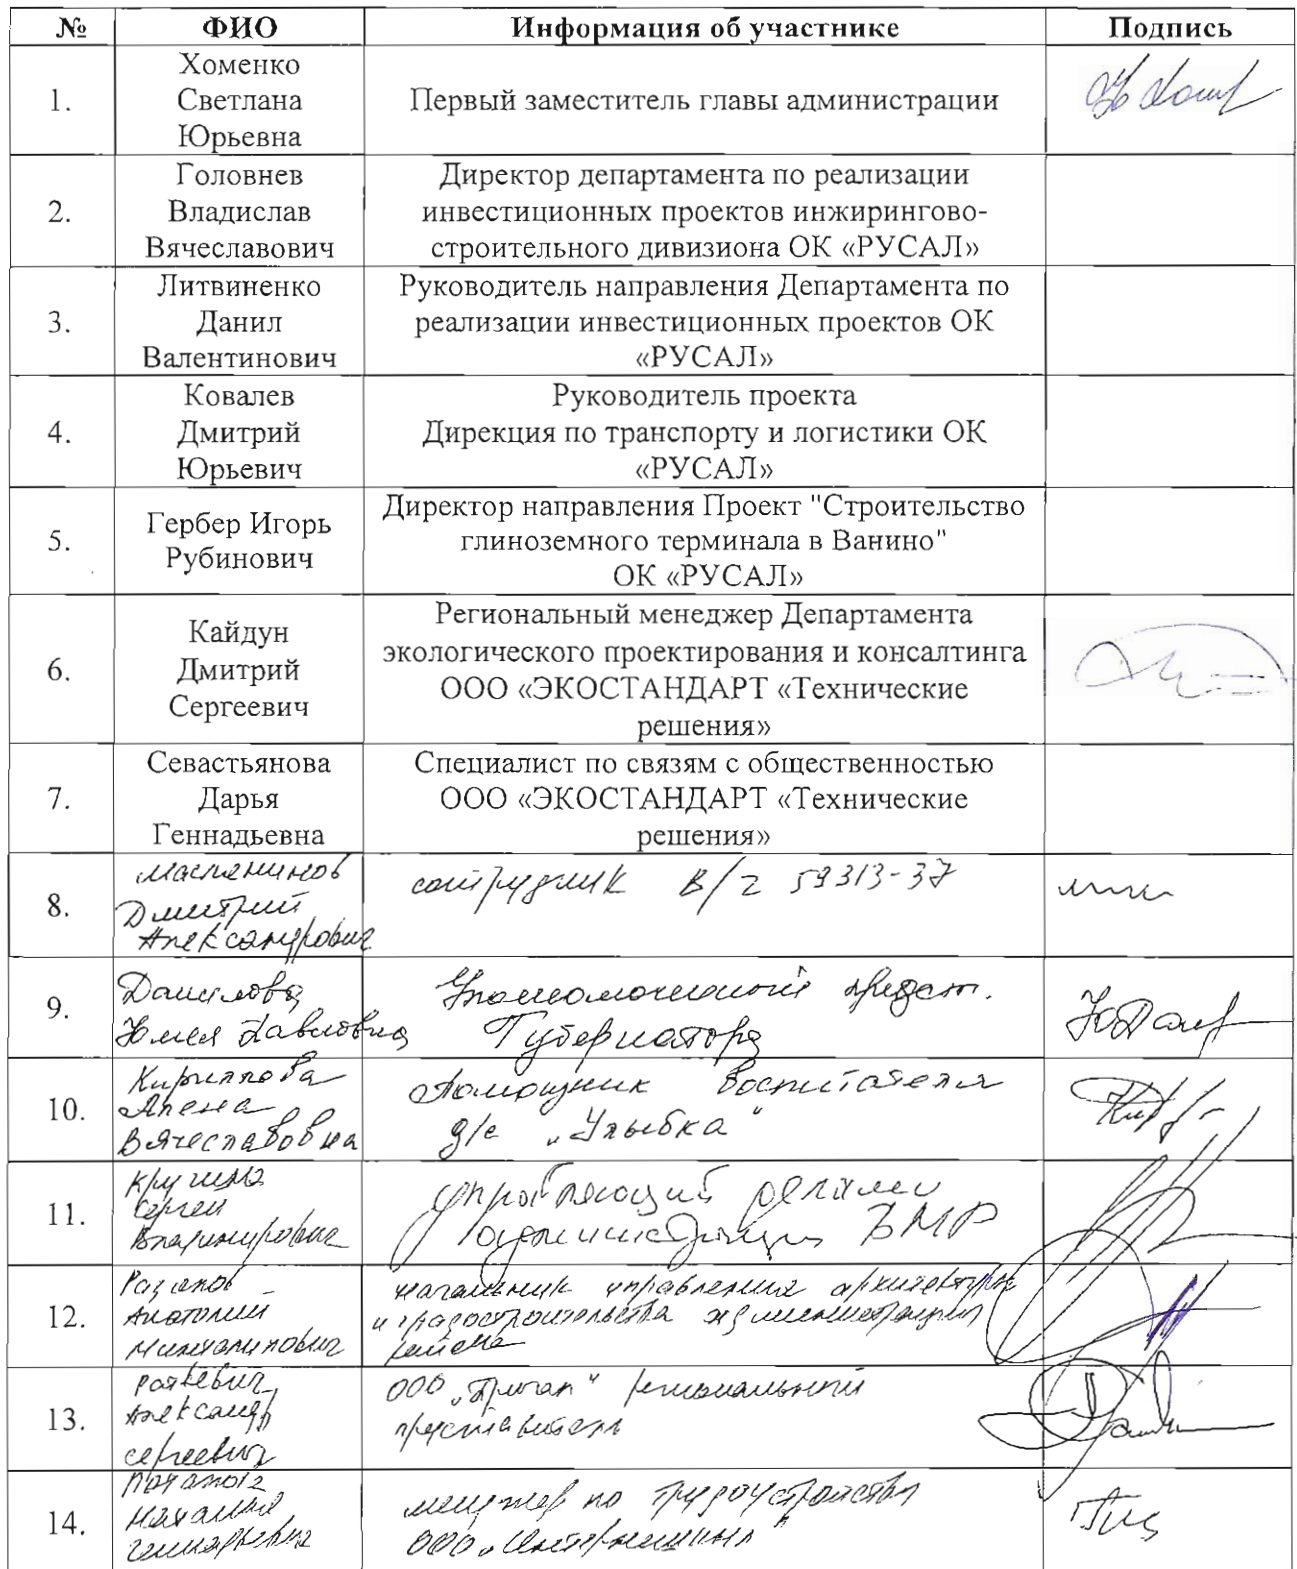 № ФИО Информация об участнике Подпись
1.
Хоменко
Светлана
Юрьевна
Первый заместитель главы администрации
2.
Головнев
Владислав
Вячеславович
Директор департамента по реализации
инвестиционных проектов инжирингово-
строительного дивизиона ОК «РУСАЛ»
3.
Литвиненко
Данил
Валентинович
Руководитель направления Департамента по
реализации инвестиционных проектов ОК
«РУСАЛ»
4.
Ковалев
Дмитрий
Юрьевич
Руководитель проекта
Дирекция по транспорту и логистики ОК
«РУСАЛ»
5.
Гербер Игорь
Рубинович
Директор направления Проект "Строительство
глиноземного терминала в Ванино"
ОК «РУСАЛ»
6.
Кайдун
Дмитрий
Сергеевич
Региональный менеджер Департамента
экологического проектирования и консалтинга
ООО «ЭКОСТАНДАРТ «Технические
решения»
7.
Севастьянова
Дарья
Геннадьевна
Специалист по связям с общественностью
ООО «ЭКОСТАНДАРТ «Технические
решения»
8.
Дмитрий
Александрович
сотрудник в/ч 59313-37
9.
Данилова
Юлия Павловна
Уполномоченный предст.
Губернатора
10.
Кириллова
Алена
Вячеславовна
Помощник воспитателя
д/с „Улыбка“
11.
Сергей
Владимирович
управляющий делами
администрации ВМР
12.
Анатолий
начальник управления архитектуры
и градостроительства администрации
района
13.
Александр
Сергеевич
ООО региональный
представитель
14.
Наталья
менеджер по трудоустройству
ООО